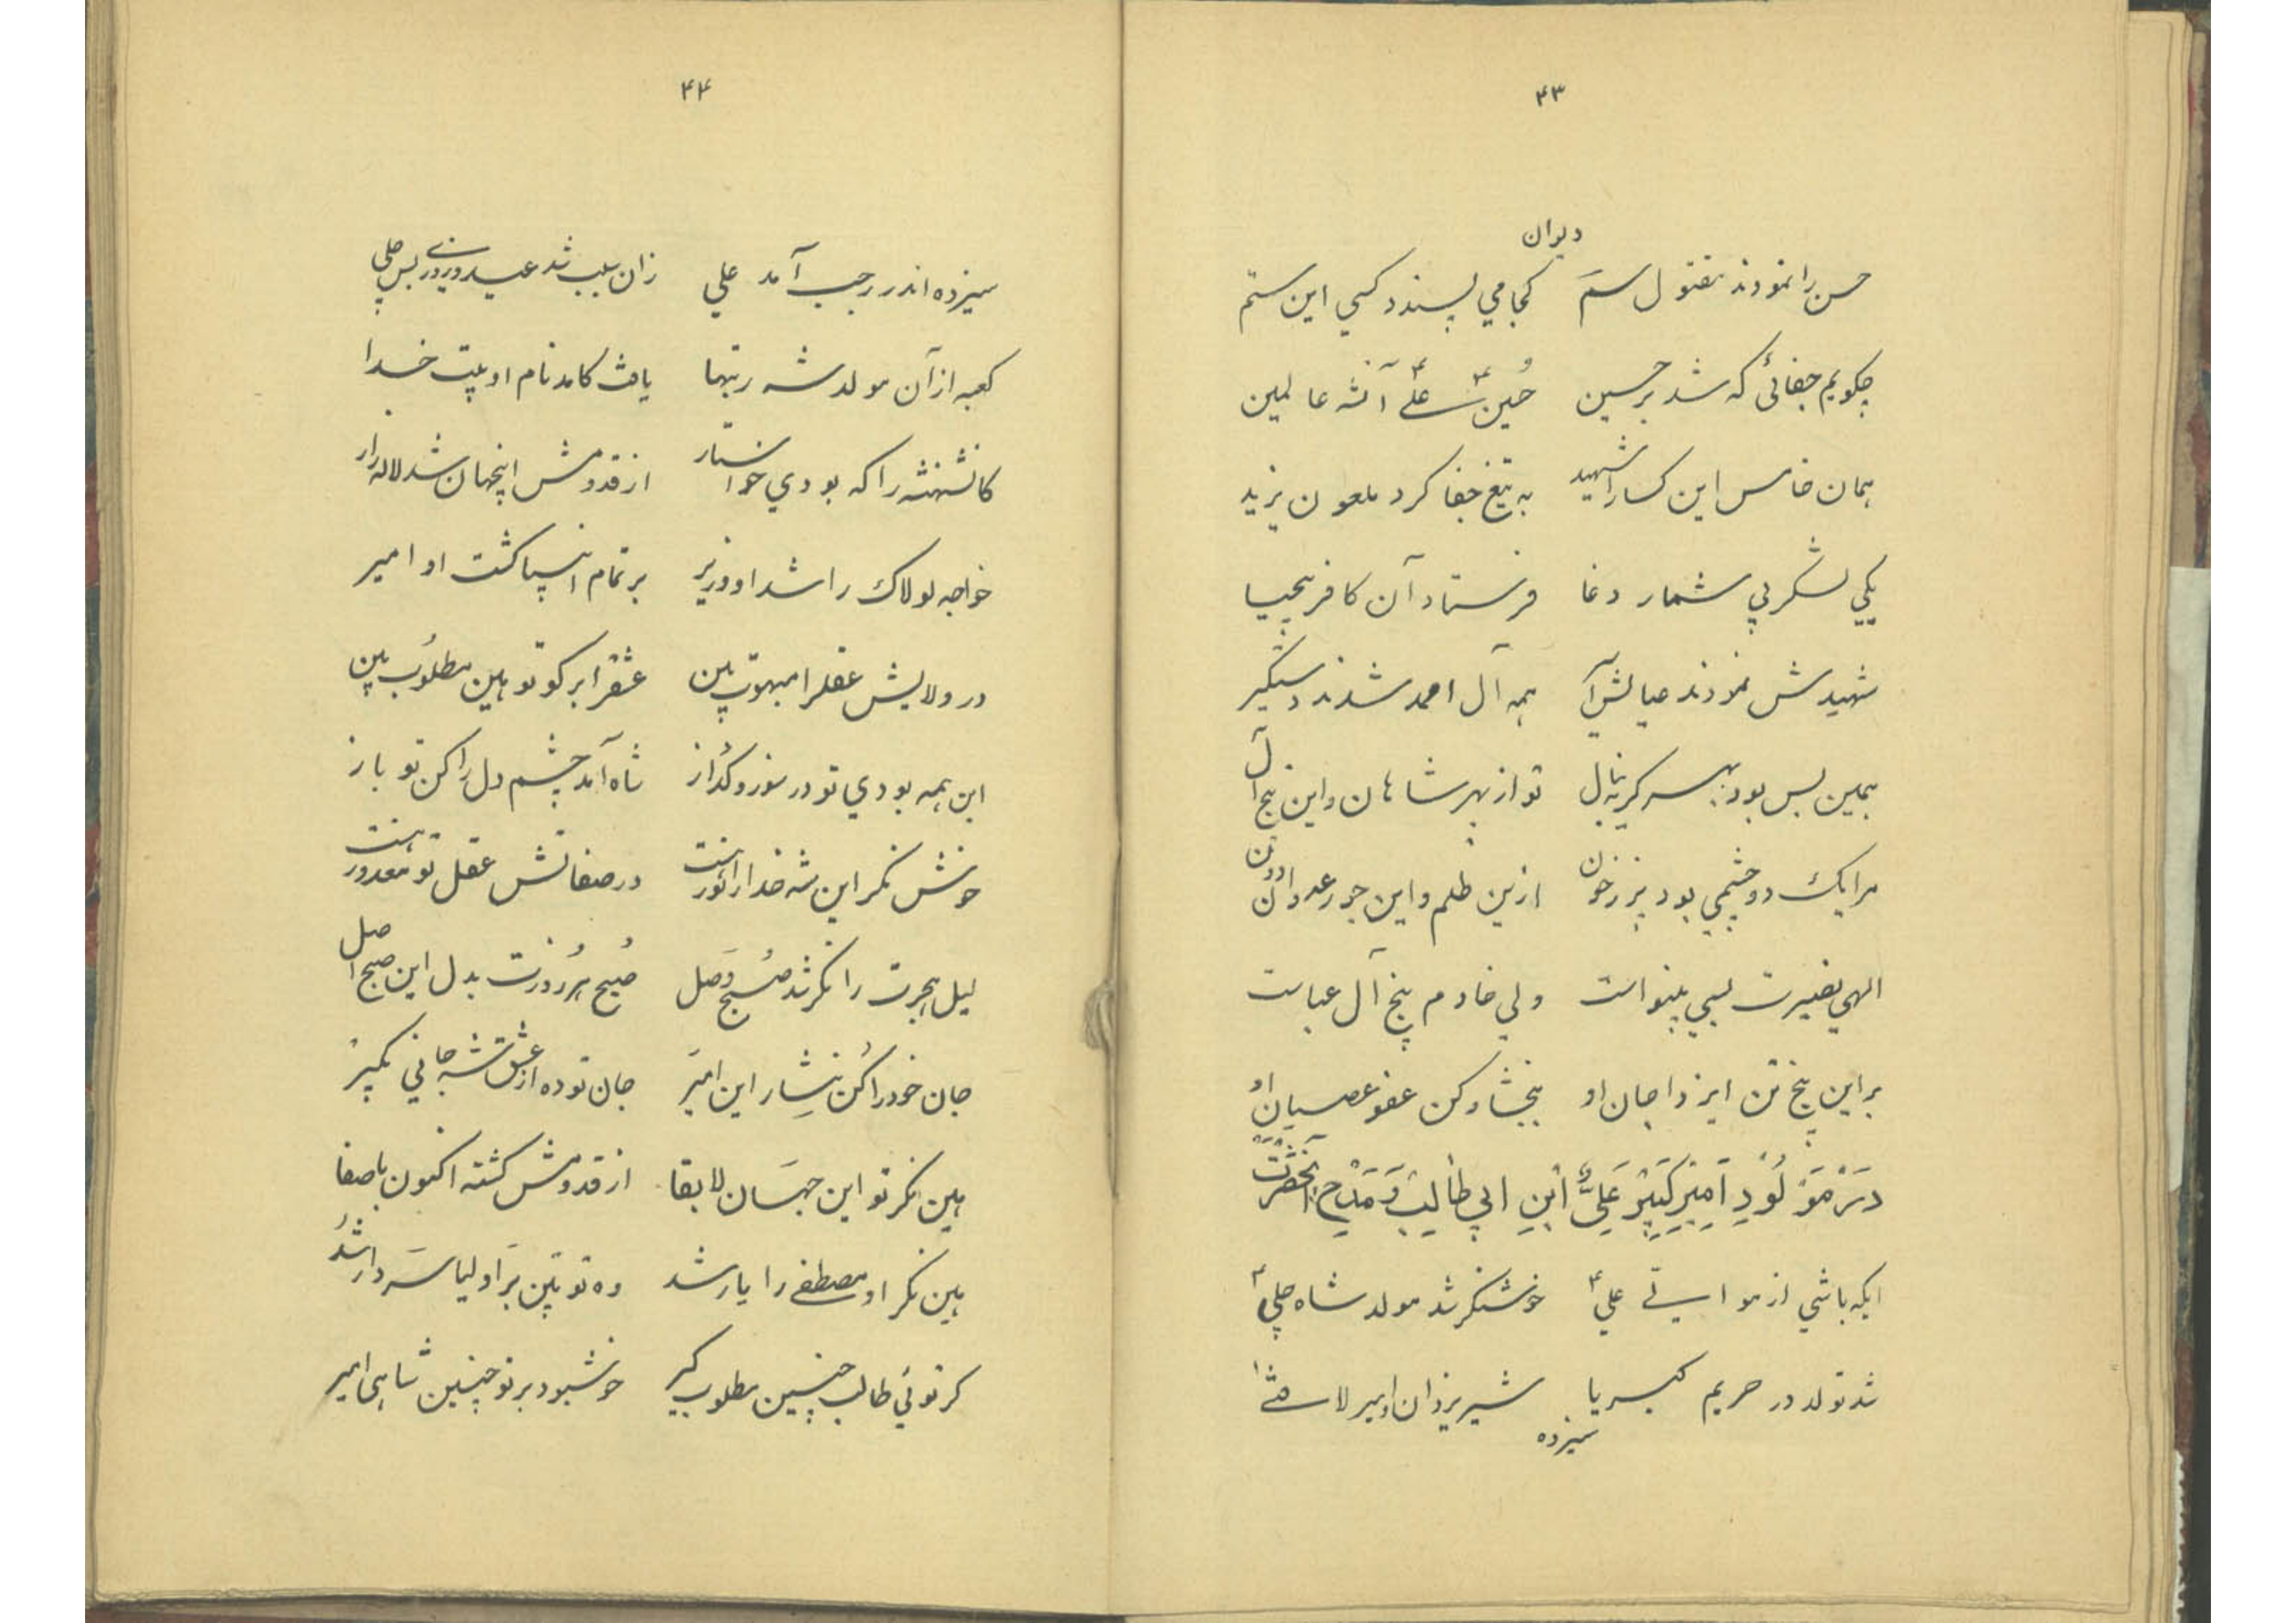 ۴۳
دیوان
حسن را نمودند مقتول سم کجا می پسندد کسی این ستم
چگویم جفائی که شد بر حسین حسین علی آنشه عالمین
همان خامس این کسا را شهید به تیغ جفا کرد ملعون یزید
یکی لشکر بی شمار دغا فرستاد آن کافر بیحیا
شهیدش نمودند همه آل احمد شدند دستگیر
همین بس بود بهر سر تو از بهر شاهان و این پنج آل
مرا یک دو چشمی بود پر ز خون ازین ظلم و این جور عدوان دون
الهی نصیرت بسی بینواست ولی خادم پنج آل عباست
بر این پنج تن ایزدا جان او ببخشا و کن عفو عصیان او
در مولود امیر کبیر علی ابن ابی طالب و مدح آنحضرت
ایکه باشی از موالی علی خوشنگر شد مولد شاه جلی
شد تولد در حریم کبریا شیر یزدان امیر لافتی
سیزده
۴۴
سیزده اندر رجب آمد علی زان سبب شد عید و نوروزی بس جلی
کعبه از آن مولد شه رتبها یافت کامد نام او بیت خدا
کانشهنشه را که بودی خواستار از قدومش اینجهان شد لاله زار
خواجه لولاک را شد او وزیر بر تمام انبیا گشت او امیر
در ولایش عقل را مبهوت بین عشق را بر گو تو هین مطلوب بین
این همه بودی تو در سوز و گداز شاه آمد چشم دل را کن تو باز
خوش نگر این شه خدا را نور هست در صفاتش عقل تو معذور هست
لیل هجرت را نگر شد صبح وصل صبح هر روزت بدل این صبح اصل
جان خود را کن نثار این امیر جان تو ده از عشق شه جانی بگیر
هین نگر تو این جهان لابقا از قدومش گشته اکنون باصفا
هین نگر او مصطفی را یار شد وه تو بین بر اولیا سردار شد
گر توئی طالب چنین مطلوب گیر خوشبود بر تو چنین شاهی امیر